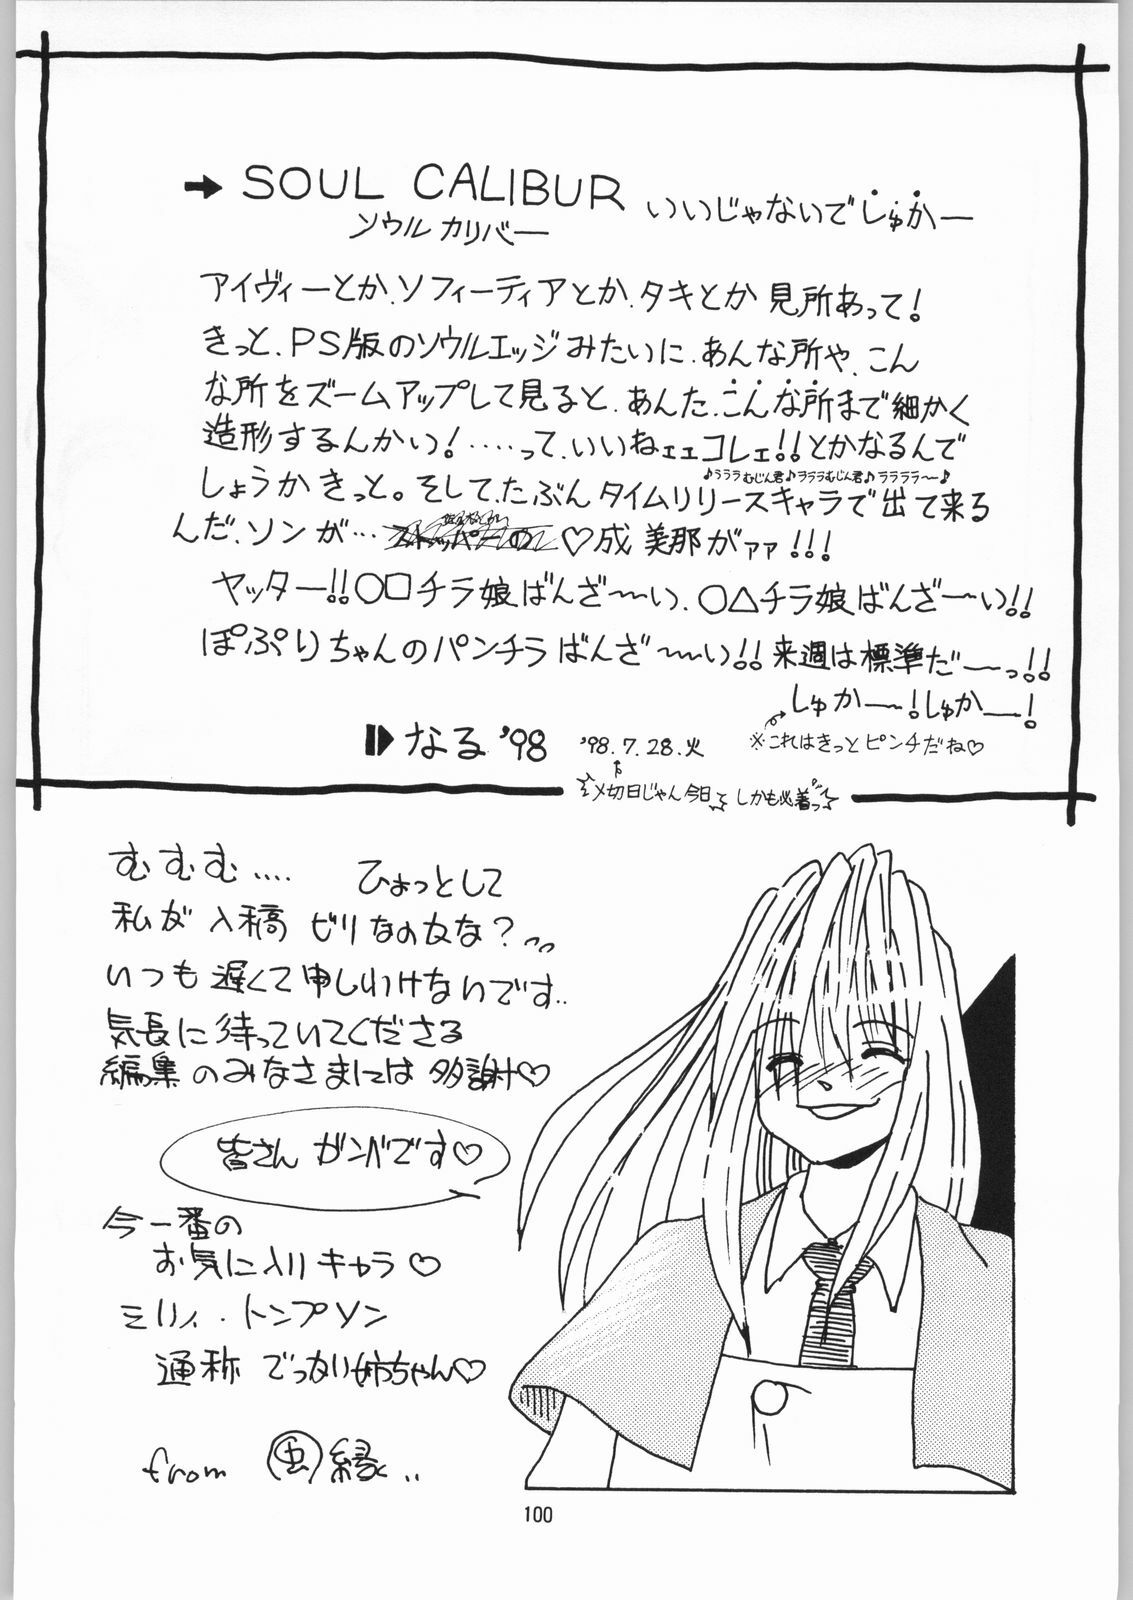 ➡ SOUL CALIBUR いいじゃないでしゅかー
ソウルカリバー
アイヴィーとか、ソフィーティアとか、タキとか見所あって!
きっと、PS版のソウルエッジみたいに、あんな所や、こん
な所をズームアップして見ると、あんた、こんな所まで細かく
造形するんかい!……って、いいねェェコレェ!!とかなるんで
♪ラララむじん君♪ラララむじん君♪ララララ〜♪
しょうかきっと。そして、たぶんタイムリリースキャラで出て来る
んだ、ソンが… ♡成美那がァァ!!!
ヤッター!!○□チラ娘ばんざ〜い、○△チラ娘ばんざ〜い!!
ぽぷりちゃんのパンチラばんざ〜い!!来週は標準だーっ!!
しゅかー!しゅかー!
※これはきっとピンチだね♡
なる '98
'98.7.28.火
〆切日じゃん今日 しかも必着っ
むむむ‥‥ ひょっとして
私が入稿ビリなのかな?
いつも遅くて申しわけないです‥
気長に待っていてくださる
編集のみなさまには多謝♡
皆さんガンバです♡
今一番の
お気に入りキャラ♡
ミリィ・トンプソン
通称でっかい姉ちゃん♡
from ㊥縁‥
100